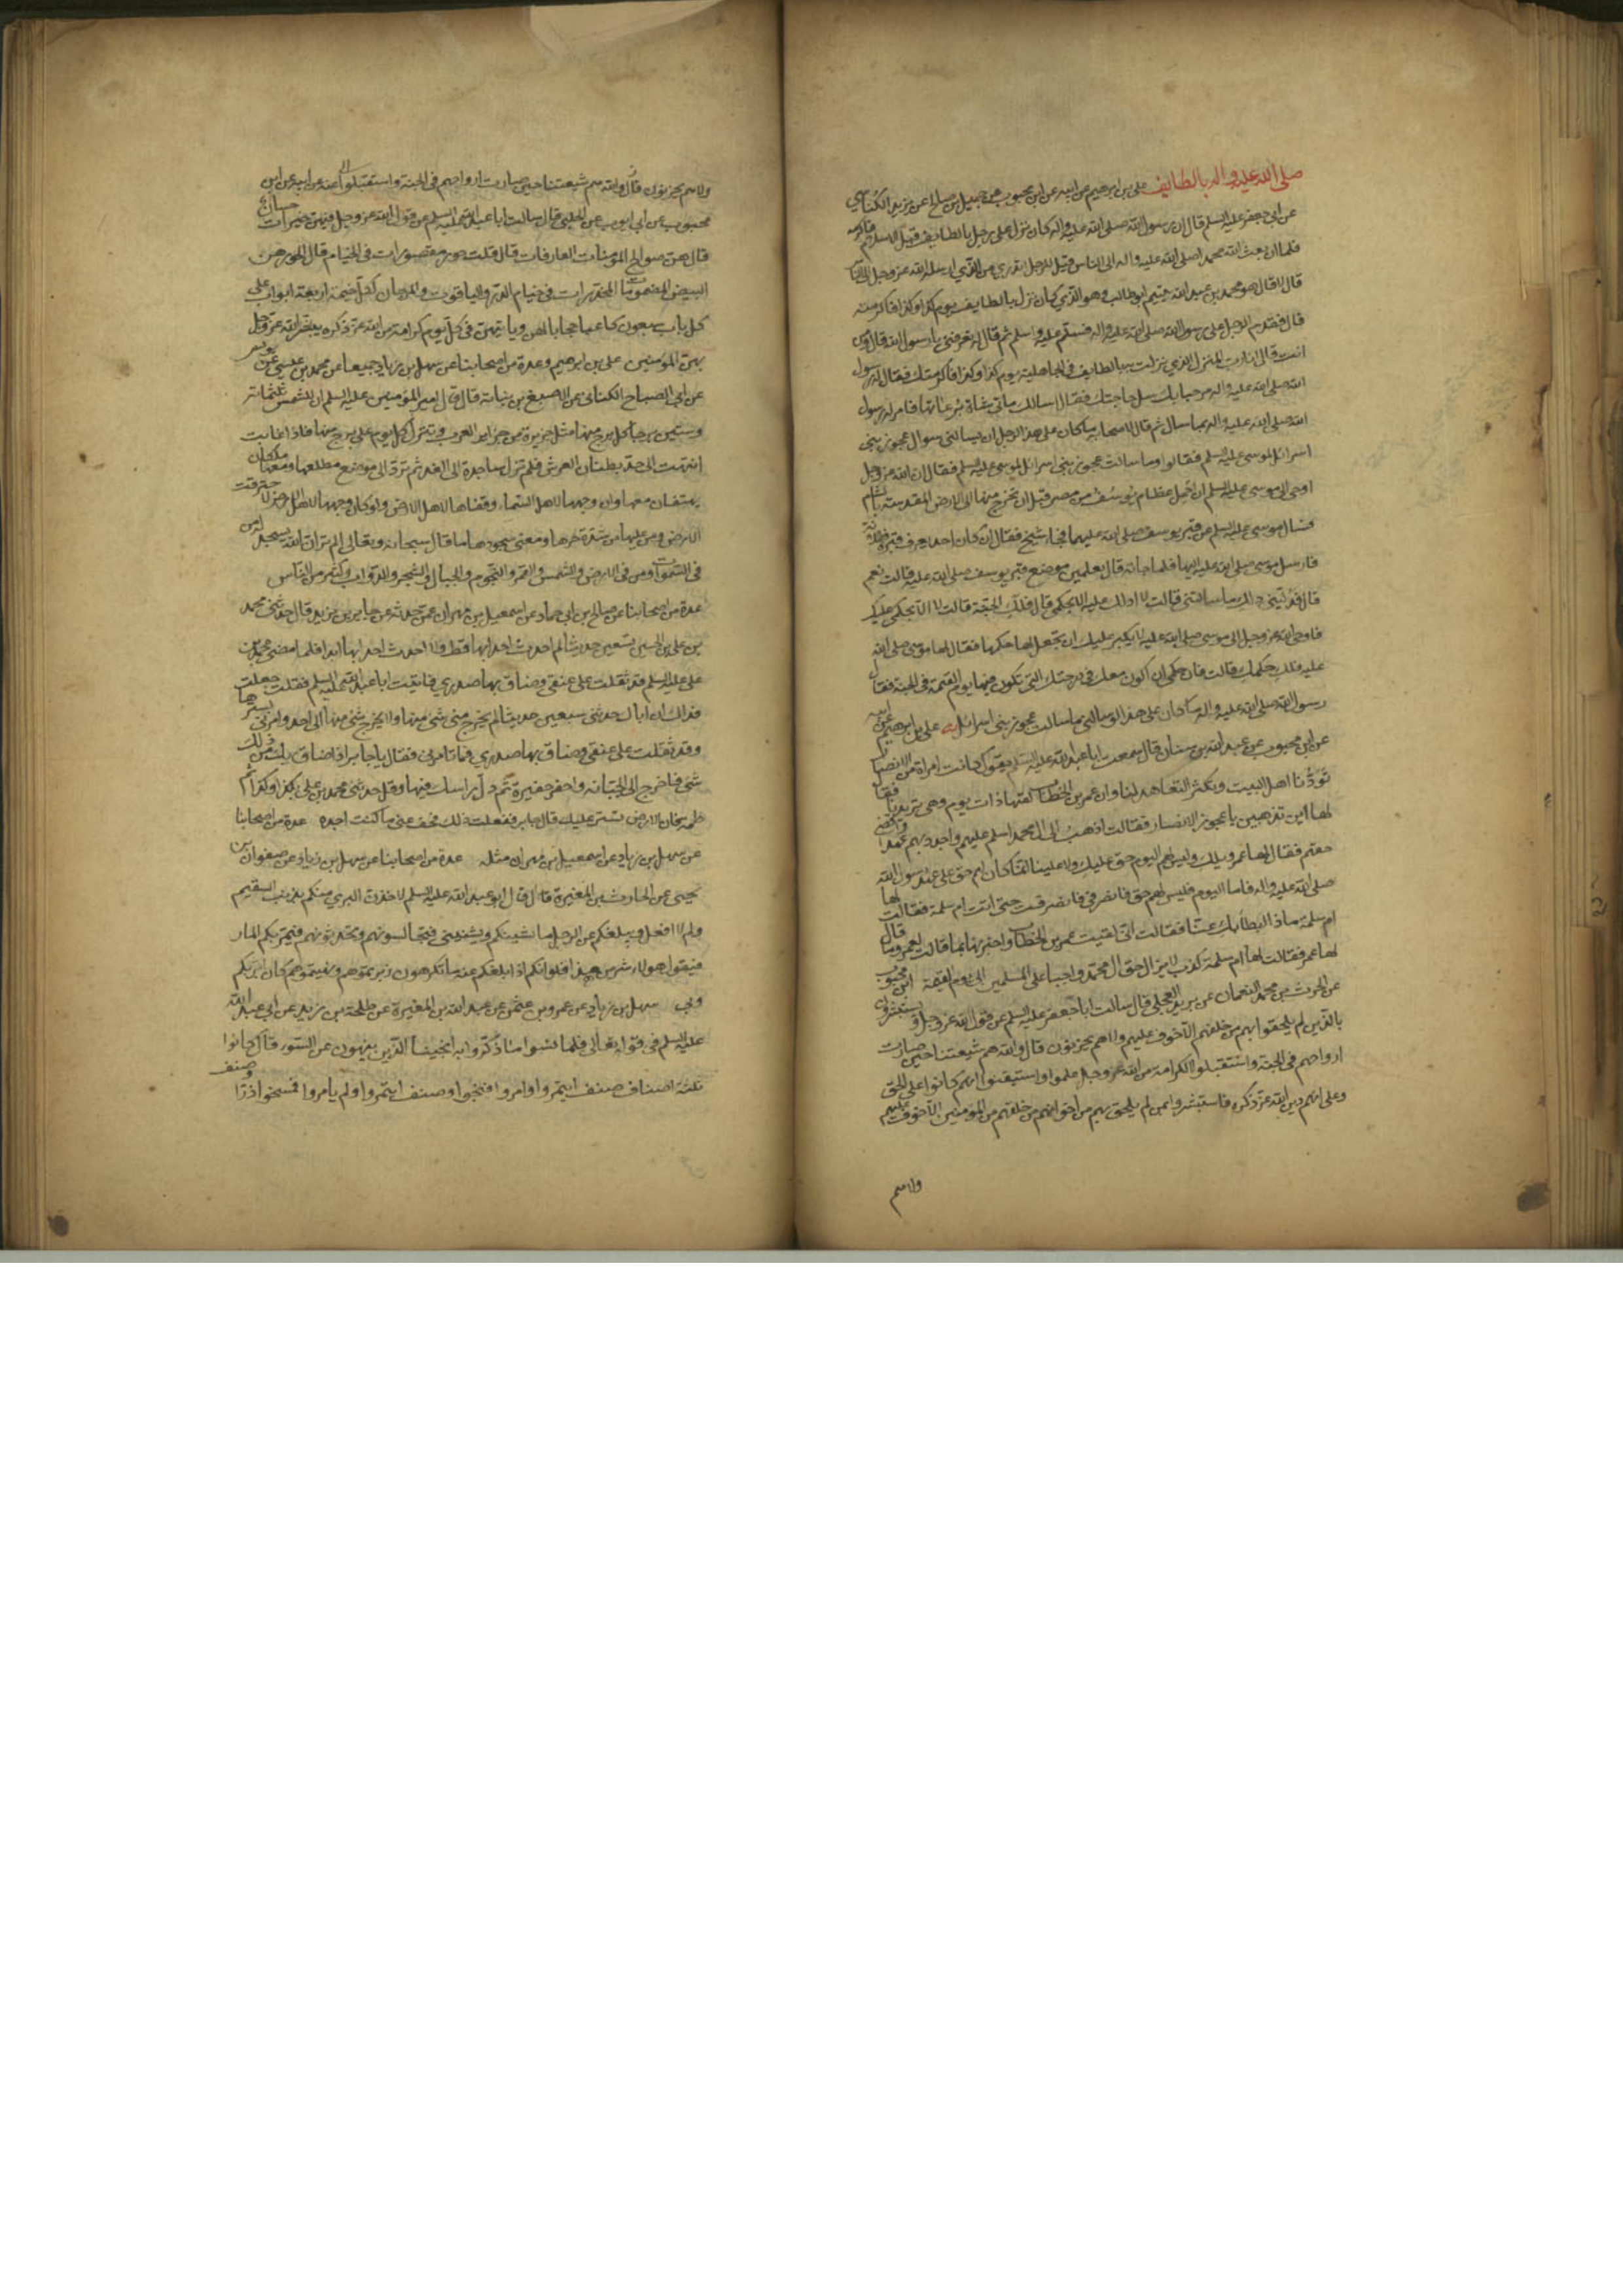 صلى الله عليه واله بالطايف على بن ابرهيم عن ابيه عن ابن محبوب عن جميل بن صالح عن يزيد الكناسي
عن ابي جعفر عليه السلم قال ان رسول الله صلى الله عليه واله كان نزل على رجل بالطايف قبل الاسلام فاكرمه
فلما ان بعث الله محمدا صلى الله عليه واله الى الناس قيل للرجل اتدري من الذي ارسله الله عز وجل الى الناس
قال لا قال هو محمد بن عبد الله يتيم ابي طالب وهو الذي كان نزل بالطايف يوم كذا وكذا فاكرمته
قال فقدم الرجل على رسول الله صلى الله عليه واله فسلم عليه واسلم ثم قال له تعرفني يا رسول الله قال ومن
انت قال انا رب المنزل الذي نزلت به بالطايف في الجاهلية يوم كذا وكذا فاكرمتك فقال له رسول
الله صلى الله عليه واله مرحبا بك سل حاجتك فقال اسالك مأتي شاة برعاتها فامر له رسول
الله صلى الله عليه واله بما سال ثم قال لاصحابه ما كان على هذا الرجل ان يسالني سوال عجوز بني
اسرائل لموسى عليه السلم فقالوا وما سالت عجوز بني اسرائل لموسى عليه السلم فقال ان الله عز وجل
اوحى الى موسى عليه السلم ان احمل عظام يوسف من مصر قبل ان تخرج منها الى الارض المقدسة بالشام
فسال موسى عليه السلم عن قبر يوسف صلى الله عليهما فجاء شيخ فقال ان كان احد يعرف قبره ففلانة
فارسل موسى صلى الله عليه اليها فلما جاته قال تعلمين موضع قبر يوسف صلى الله عليه قالت نعم
قال فدليني عليه ولك ما سالت قالت لا ادلك عليه الا بحكمي قال فلك الجنة قالت لا الا بحكمي عليك
فاوحى الله عز وجل الى موسى صلى الله عليه لا يكبر عليك ان تجعل لها حكمها فقال لها موسى صلى الله
عليه فلك حكمك قالت فان حكمي ان اكون معك في درجتك التي تكون فيها يوم القيمة في الجنة فقال
رسول الله صلى الله عليه واله ما كان على هذا لو سالني ما سالت عجوز بني اسرائل على بن ابرهيم عن ابيه
عن ابن محبوب عن عبد الله بن سنان قال سمعت ابا عبد الله عليه السلم يقول كانت امراة من الانصار
تودنا اهل البيت وتكثر التعاهد لنا وان عمر بن الخطاب لقيها ذات يوم وهي تريدنا فقال
لها اين تذهبين يا عجوز الانصار فقالت اذهب الى ال محمد اسلم عليهم واجدد بهم عهدا واقضي
حقهم فقال لها عمر ويلك وليس لهم اليوم حق عليك ولا علينا انما كان لهم حق على عهد رسول الله
صلى الله عليه واله فاما اليوم فليس لهم حق فانصرفي فانصرفت حتى اتت ام سلمة فقالت لها
ام سلمة ماذا ابطأ بك عنا فقالت اني لقيت عمر بن الخطاب واخبرتها بما قالت لعمر وما قال
لها عمر فقالت لها ام سلمة كذب لا يزال حق ال محمد واجبا على المسلمين الى يوم القيمة ابن محبوب
عن الحرث بن محمد النعمان عن بريد العجلي قال سالت ابا جعفر عليه السلم عن قول الله عز وجل ويستبشرون
بالذين لم يلحقوا بهم من خلفهم الا خوف عليهم ولا هم يحزنون قال والله هم شيعتنا حين صارت
ارواحهم في الجنة واستقبلوا الكرامة من الله عز وجل علموا واستيقنوا انهم كانوا على الحق
وعلى انهم دين الله عز ذكره فاستبشروا بمن لم يلحق بهم من اخوانهم من خلفهم من المومنين الا خوف عليهم
ولاهم
ولاهم يحزنون قال والله هم شيعتنا حين صارت ارواحهم في الجنة واستقبلوا عنه عن ابيه عن ابن
محبوب عن ابي ايوب عن الحلبي قال سالت ابا عبد الله عليه السلم عن قول الله عز وجل فيهن خيرات حسان
قال هن صوالح المومنات العارفات قال قلت حور مقصورات في الخيام قال الحور هن
البيض المضمومات المخدرات في خيام الدر والياقوت والمرجان لكل خيمة اربعة ابواب على
كل باب سبعون كاعبا حجابا لهن وياتيهن في كل يوم كرامة من الله عز ذكره يبشر الله عز وجل
بهن المومنين على بن ابرهيم وعدة من اصحابنا عن سهل بن زياد جميعا عن محمد بن عيسى عن يونس
عن ابي الصباح الكناني عن الاصبغ بن نباتة قال قال امير المومنين عليه السلم ان للشمس ثلثماتة
وستين برجا كل برج منها مثل جزيرة من جزاير العرب وتنزل كل يوم على برج منها فاذا غابت
انتهت الى حد بطنان العرش فلم تزل ساجدة الى الغد ثم ترد الى موضع مطلعها ومعها ملكان
يهتفان معها وان وجهها لاهل السماء وقفاها لاهل الارض ولو كان وجهها لاهل الارض لاحترقت
الارض ومن عليها من شدة حرها ومعنى سجودها ما قال سبحانه وتعالى الم تر ان الله يسجد له من
في السموات ومن في الارض والشمس والقمر والنجوم والجبال والشجر والدواب وكثير من الناس
عدة من اصحابنا عن صالح بن ابي حماد عن اسمعيل بن مهران عمن حدثه عن جابر بن يزيد قال حدثني محمد
بن على بن الحسين تسعين حديثا لم احدث احدا بها قط ولا احدث احدا بها ابدا فلما مضى محمد بن
على عليه السلم ثقلت على عنقي وضاق بها صدري فاتيت ابا عبد الله عليه السلم فقلت جعلت
فداك ان اباك حدثني سبعين حديثا لم يخرج مني شي منها ولا يخرج شي منها الى احد وامرني بسترها
وقد ثقلت على عنقي وضاق بها صدري فما تامرني فقال يا جابر اذا ضاق بك من ذلك
شي فاخرج الى الجبانة واحفر حفيرة ثم دل راسك فيها وقل حدثني محمد بن على بكذا وكذا ثم
طمه فان الارض تستر عليك قال جابر ففعلت ذلك فخف عني ما كنت اجده عدة من اصحابنا
عن سهل بن زياد عن اسمعيل بن مهران مثله عدة من اصحابنا عن سهل بن زياد عن صفوان بن
يحيى عن الحارث بن المغيرة قال قال ابو عبد الله عليه السلم لاخذن البري منكم بذنب السقيم
ولم لا افعل ويبلغكم عن الرجل ما يشينكم ويشينني فتجالسونهم وتحدثونهم فيمر بكم المار
فيقول هولاء شر من هذا فلو انكم اذا بلغكم عنه ما تكرهون زبرتموهم ونهيتموهم كان ابر بكم
وبي سهل بن زياد عن عمرو بن عثمن عن عبد الله بن المغيرة عن طلحة بن زيد عن ابي عبد الله
عليه السلم في قوله تعالى فلما نسوا ما ذكروا به انجينا الذين ينهون عن السوء قال كانوا
ثلثة اصناف صنف ايتمروا وامروا فنجوا وصنف ايتمروا ولم يامروا فمسخوا ذرا وصنف